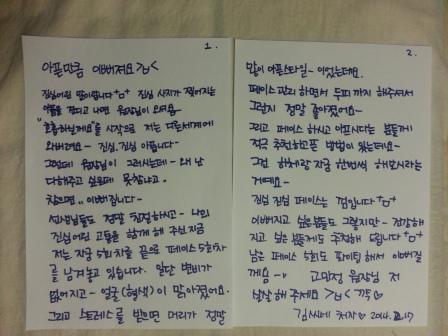 1.
아픈만큼 이뻐져요 >ㅂ<
진심어린 말이랍니다 ㅁ 진심 사지가 찢어지는
아픔을 견디고 나면 원장님이 오셔요
"호흡하실게요"를 시작으로 저는 다른세계에
와버려요 - 진심. 진심 아픕니다 -
그런데 원장님이 그러시는데 - 왜 난
다해주고 싶은데 못참냐고.
참으면.. 이뻐집니다 -
선생님들도 정말 친절하시고 - 나의
진심어린 고통을 함께 해 주신 지금
저는 지금 5회차를 끝으로 페이스 5회차
를 남겨놓고 있습니다. 일단 변비가
없어지고 - 얼굴(혈색)이 맑아졌어요.
그리고 스트레스를 받으면 머리가 정말
2.
많이 아픈스타일 - 이었는데요.
페이스관리 하면서 두피까지 해주셔서
그런지 정말 좋아졌어요 -
그리고 페이스 하시고 아프시다는 분들께
적극 추천하고픈 방법이 있는데요 -
그건 하체랑 지금 한번씩 해보시라는
거예요 -
진심 진심 페이스는 껌입니다
이뻐지고 싶은분들도 그렇지만 - 건강해
지고 싶은 분들께도 추천해 드립니다
남은 페이스 5회도 화이팅 해서 이뻐질
께요 ~ 고민정 원장님 저
살살 해주세요 >ㅂ< 끅
김씨네 처자 2014. 2. 17